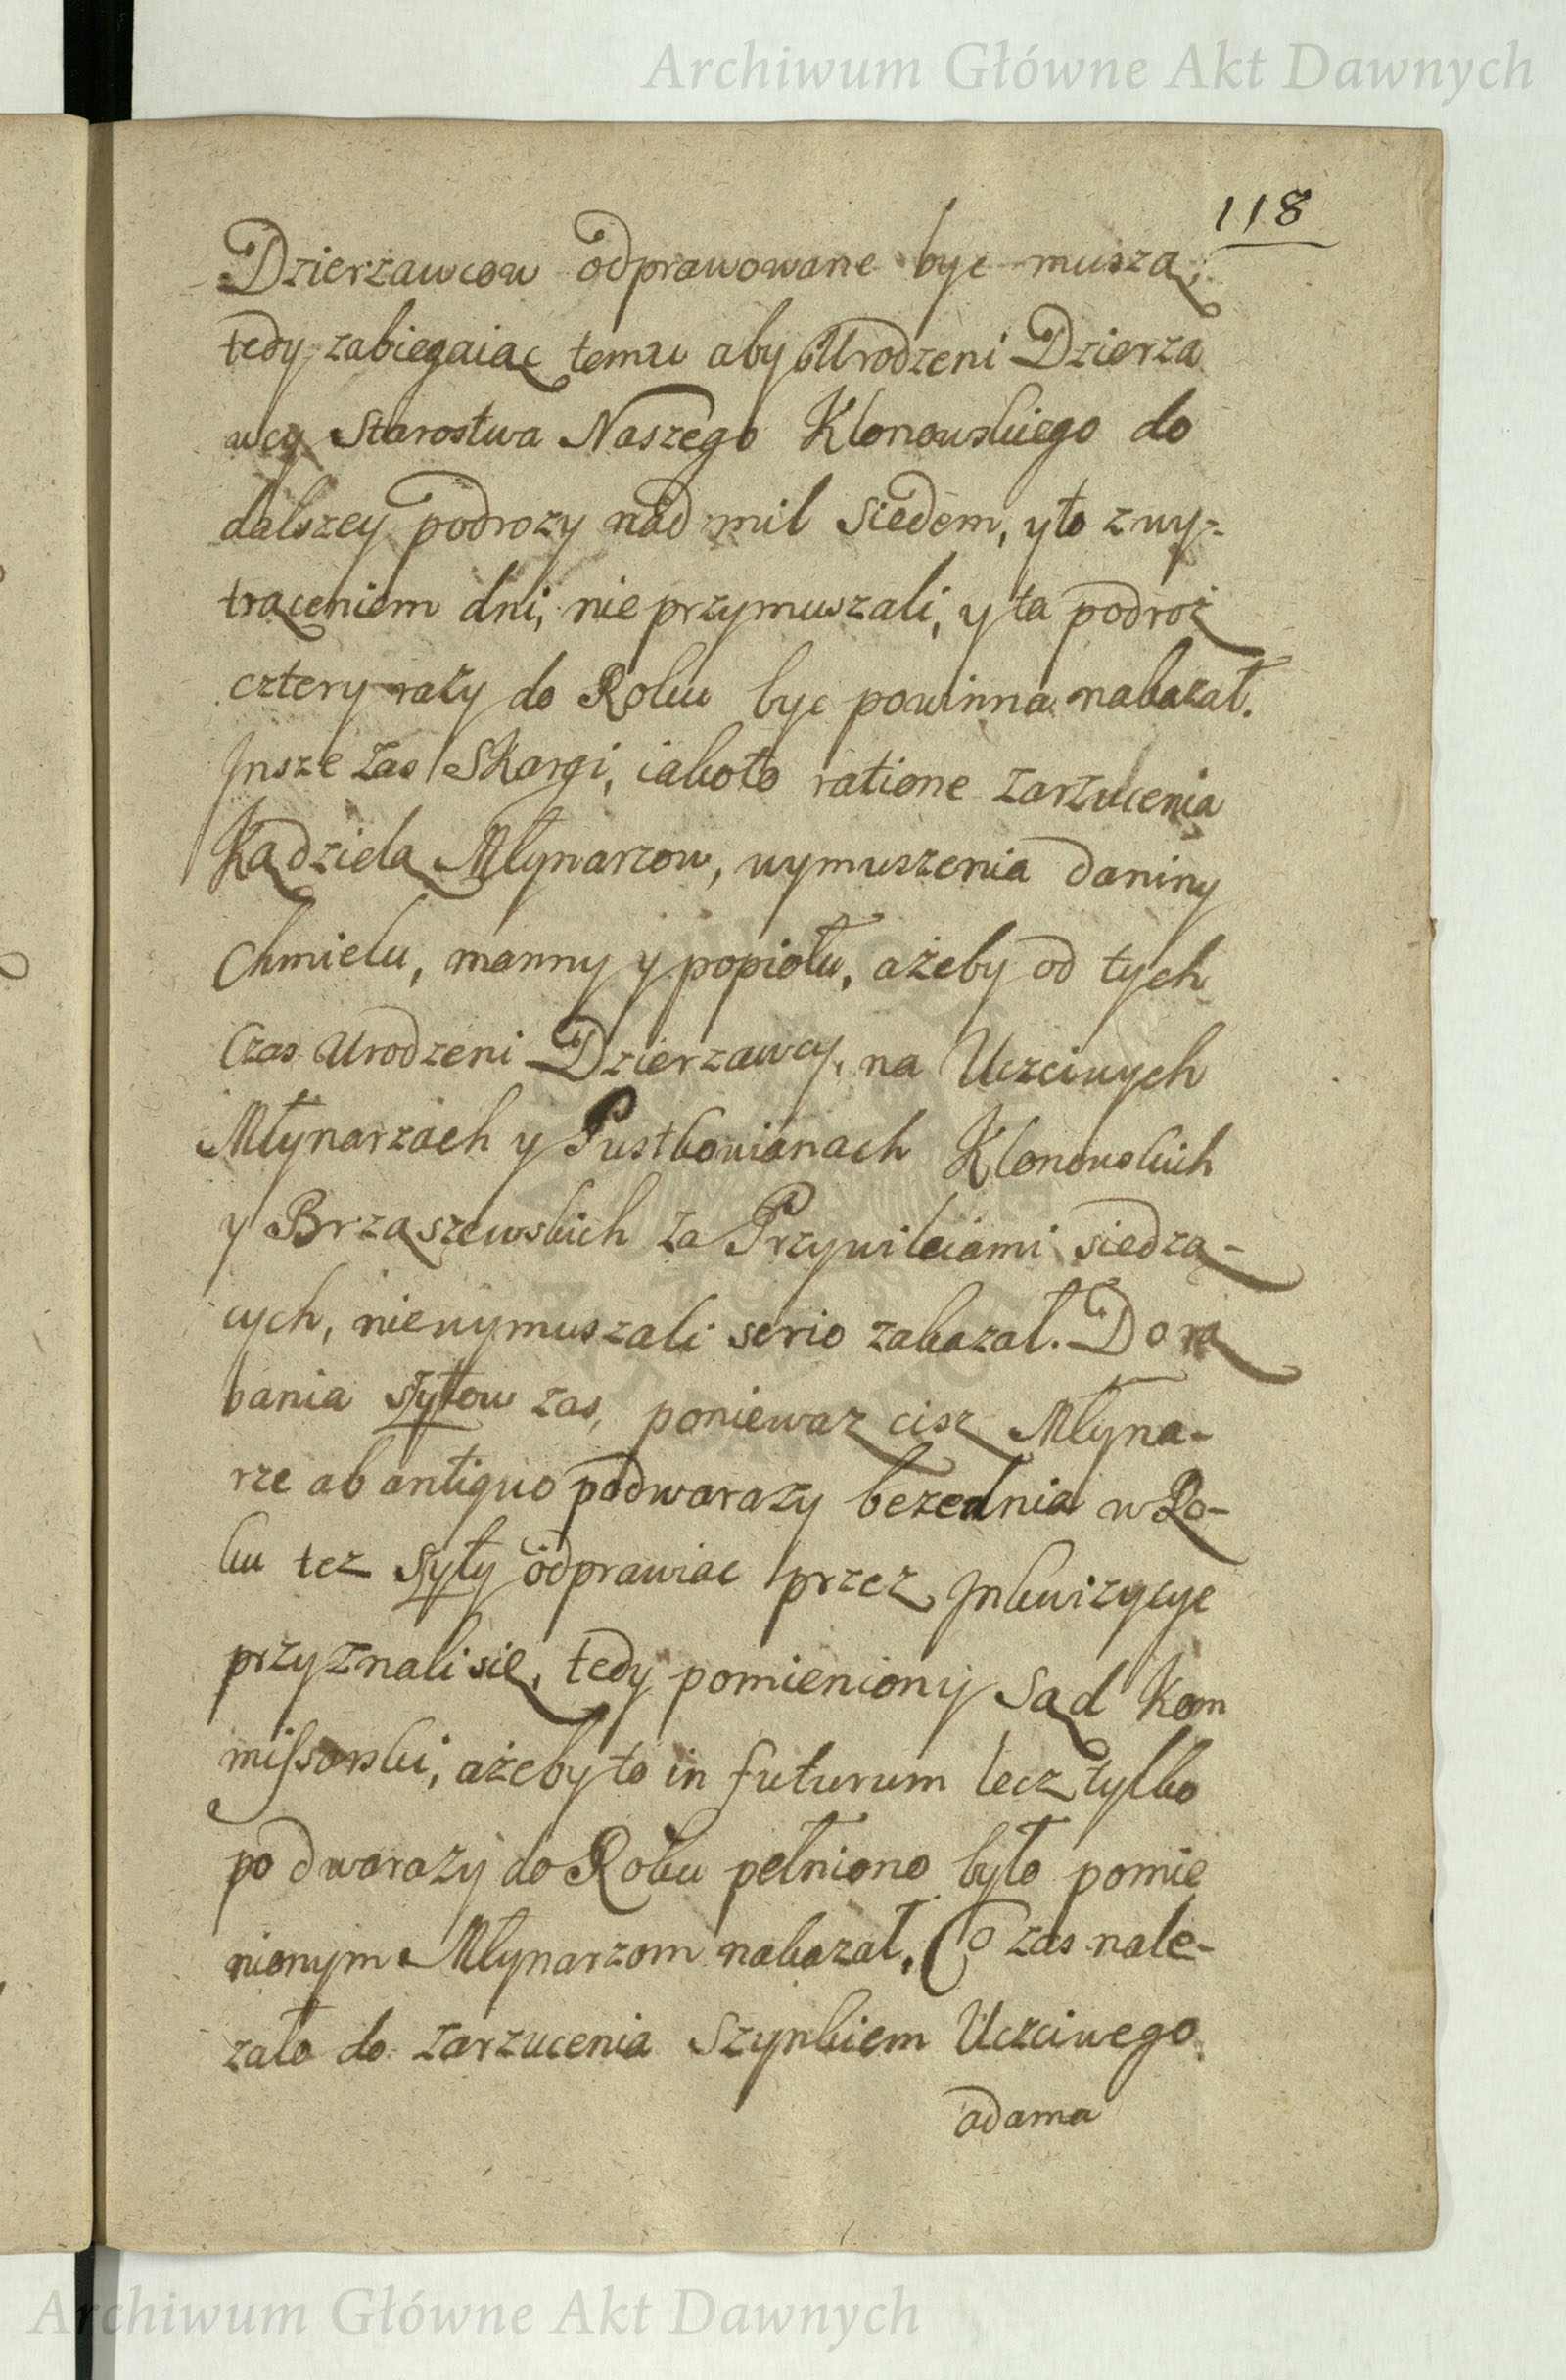 Archiwum Główne Akt Dawnych
118
Dzierzawcow odprawowane byc muszą;
tedy zabiegaiąc temu aby Urodzeni Dzierza
wcy Starostwa Naszego Klonowskiego do
dalszey podrozy nad mil siedem, y to z wy-
trąceniem dni, nie przymuszali, y ta podroż
cztery raży do Roku byc powinna nakazał.
Jnsze zas Skargi, iakoto ratione zarzucenia
Kądziela Młynarzow, wymuszenia daniny
Chmielu, manny y popiołu, ażeby od tych
Czas Urodzeni Dzierzawcy, na Uczciwych
Młynarzach y Pustkowianach Klonowskich
y Brząszewskich za Przywileiami siedzą-
cych, niewymuszali serio zakazał. Do rą
bania szytow zas, poniewaz cisz Młyna-
rze ab antiquo podwaraży bezednia w Ro-
ku tez szyty odprawiac przez Jnkwizycye
przyznali się, tedy pomieniony Sąd Kom
missorski, ażeby to in futurum lecz tylko
po dwaraży do Roku pełniono było pomie
nionym Młynarzom nakazał. Co zas nale-
zało do zarzucenia Szynkiem Uczciwego
adama
Archiwum Główne Akt Dawnych